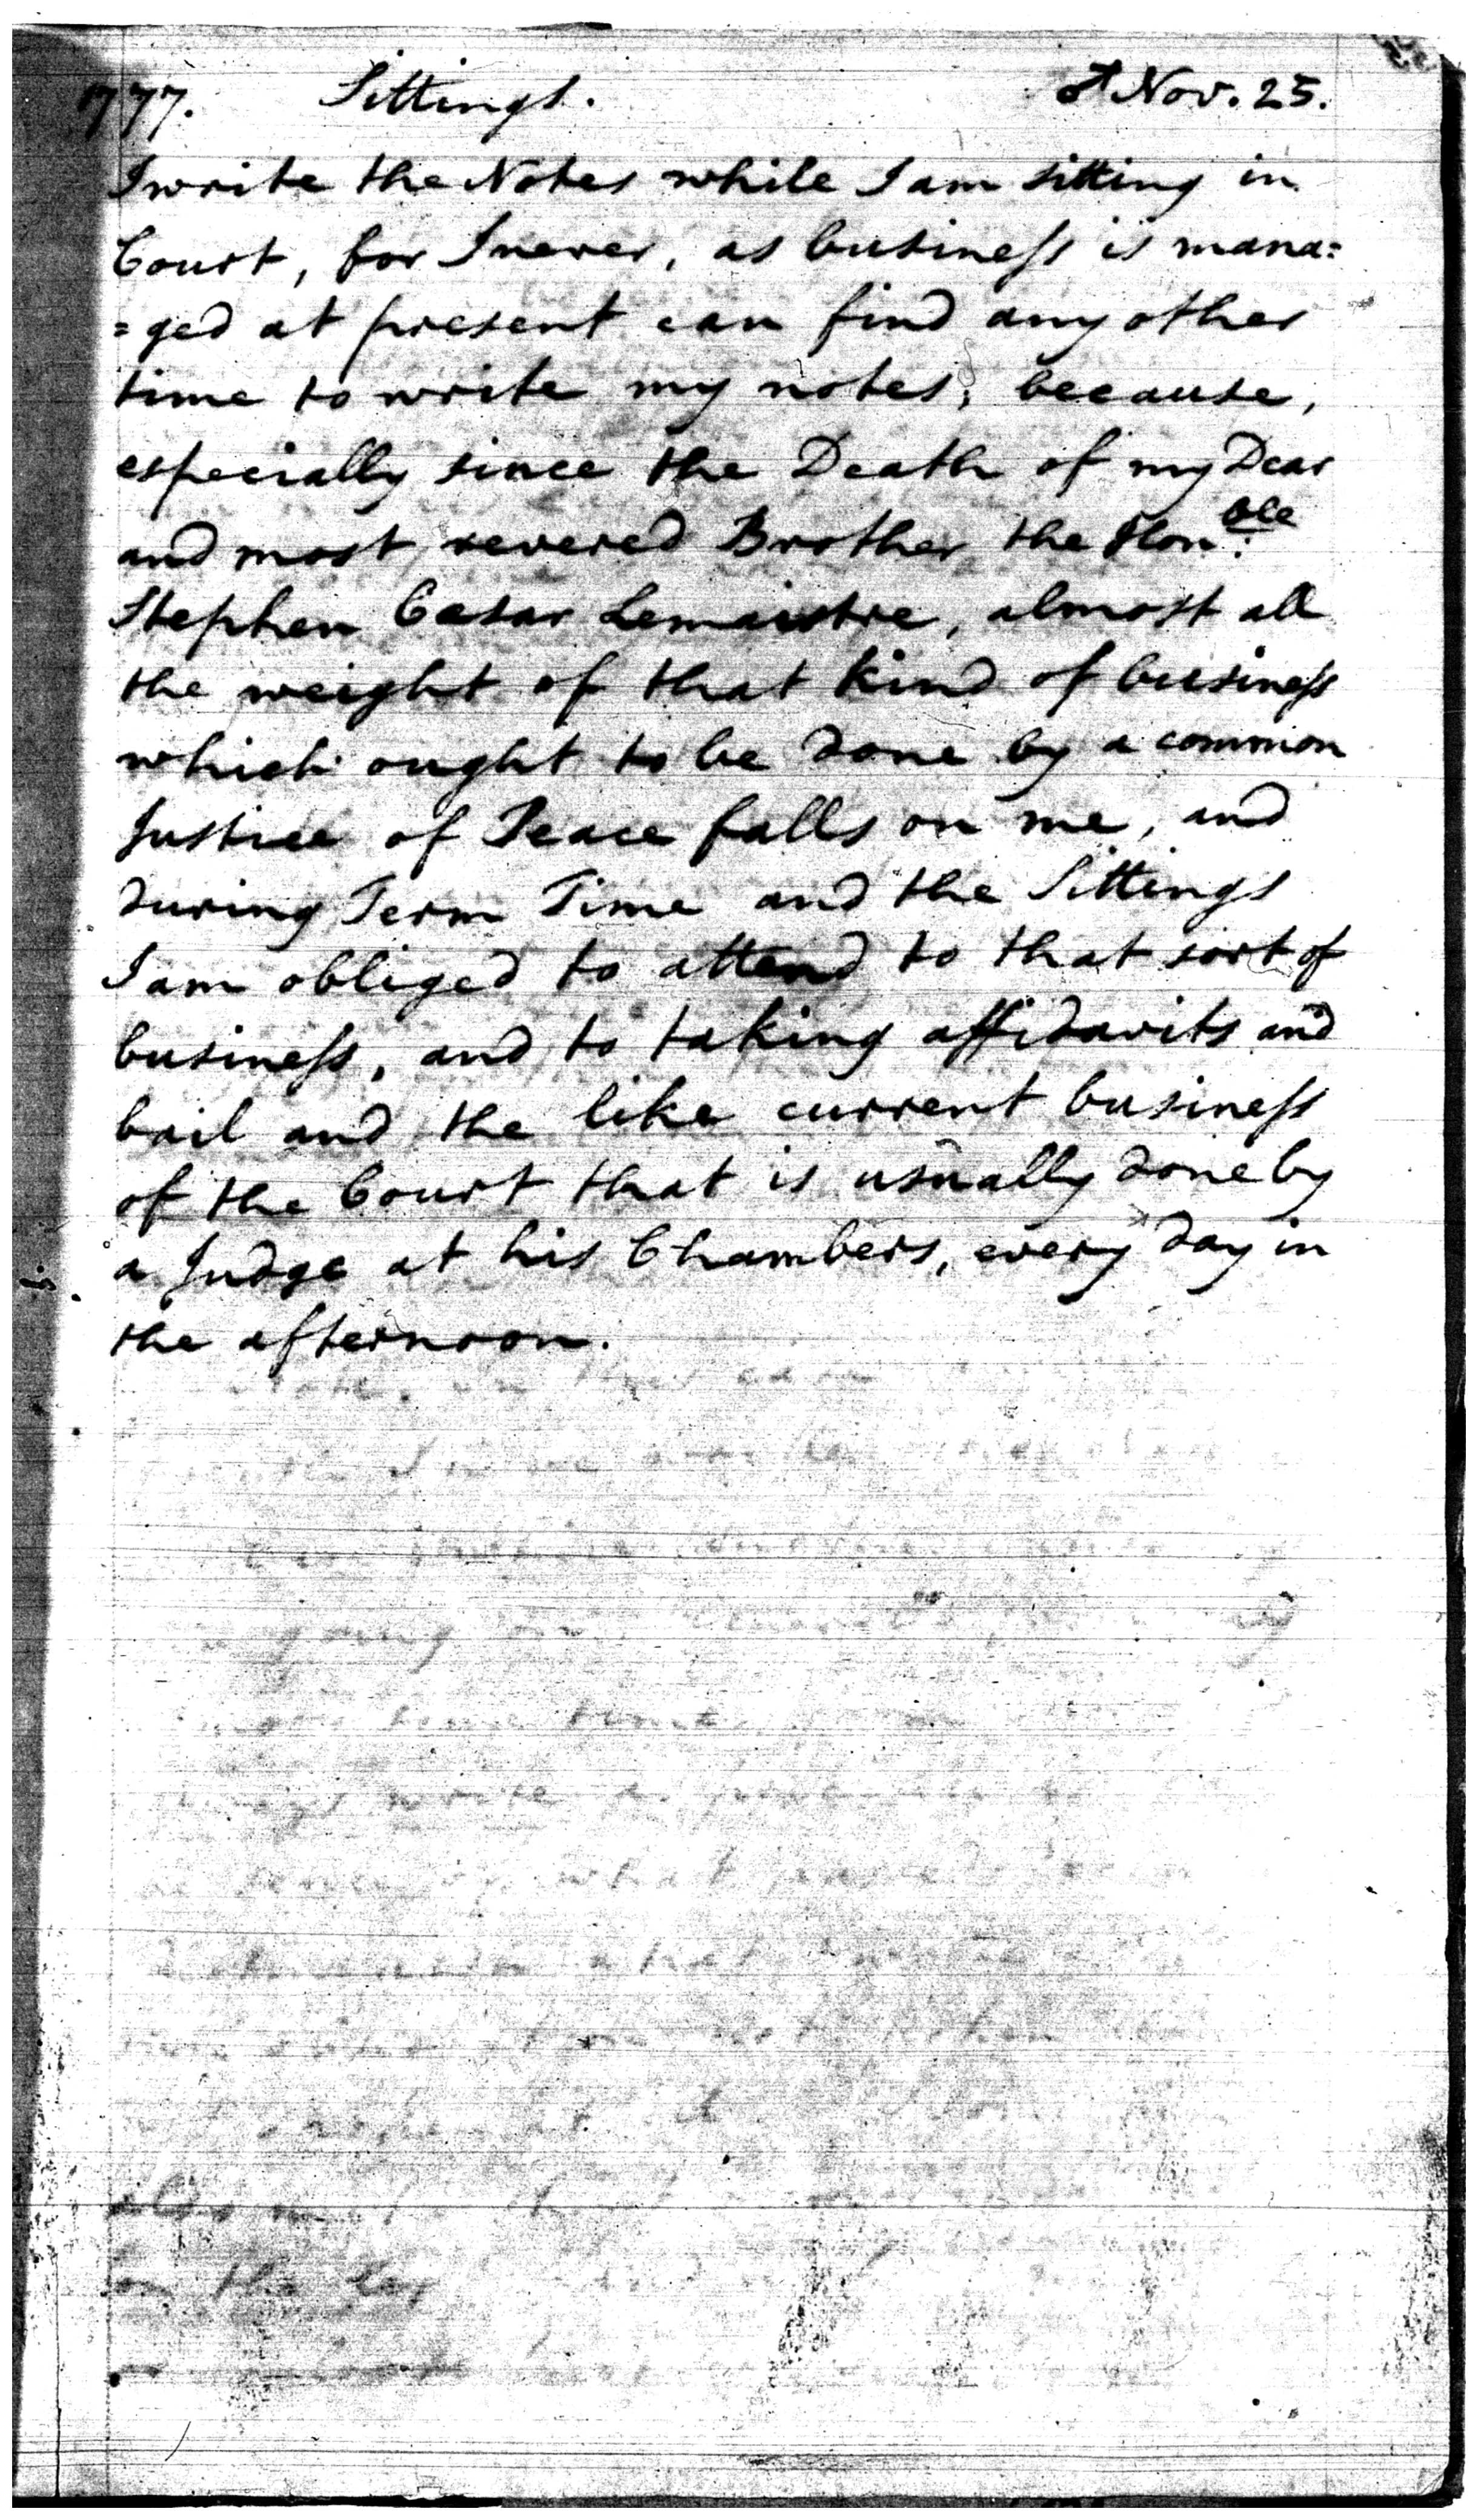 1777. Sittings. ♂ Nov. 25.
I write the Notes while I am sitting in
Court, for I never, as busineſs is mana=
=ged at present can find any other
time to write my notes; because,
especially since the Death of my Dear
and most revered Brother the Hon:ble
Stephen Cæsar Lemaistre, almost all
the weight of that kind of busineſs
which ought to be done by a common
Justice of Peace falls on me, and
during Term Time and the Sittings
I am obliged to attend to that sort of
busineſs, and to taking affidavits and
bail and the like current busineſs
of the Court that is usually done by
a Judge at his Chambers, every day in
the afternoon.